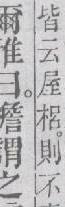 皆云屋梠則不
爾雅曰。簷謂之